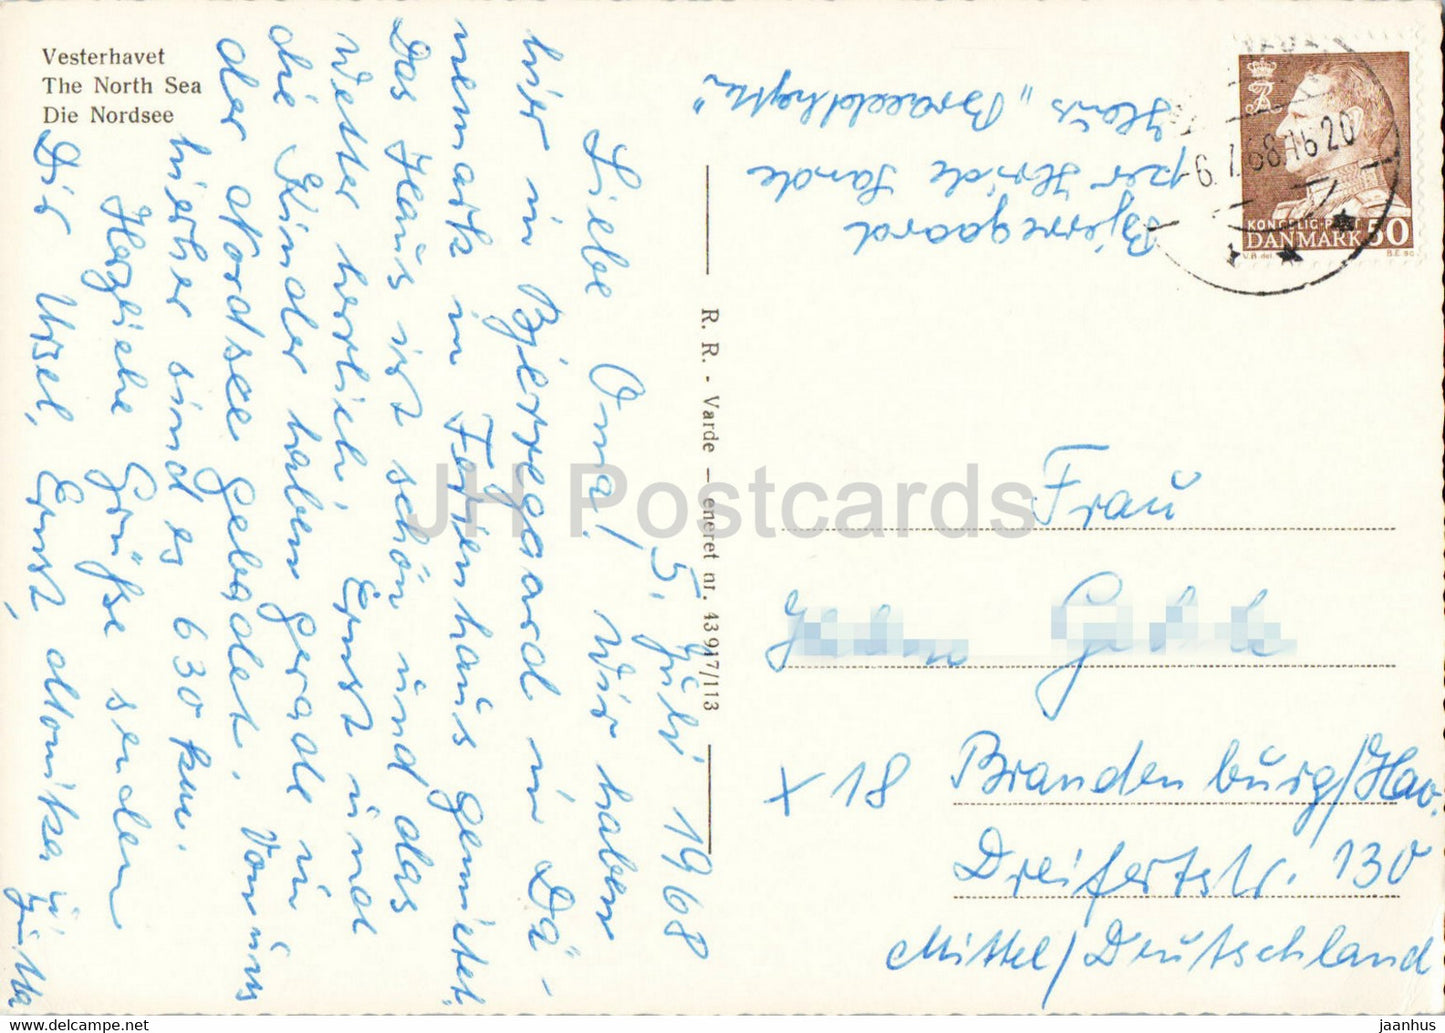 Vesterhavet
The North Sea
Die Nordsee
5. Juli 1968
Liebe Oma! Wir haben
hier in Bjerregaard in Dä-
nemark in Ferienhaus gemietet.
Das Haus ist schön und das
Wetter herrlich. Ernst und
die Kinder haben gerade in
der Nordsee gebadet. Von uns
hierher sind es 630 km.
Herzliche Grüße senden
Dir Ursel, Ernst, Monika u.
Jutta
R. R. - Varde — eneret nr. 43917/113
Bjerregaard
per Hvide Sande
Haus „
6.7.68.16 20
KONGELIG POST
DANMARK 50
V.B. del.
Frau
X 18
Brandenburg/Hav.
Dreifertstr. 130
Mittel/Deutschland
JH Postcards
jaanhus — https://www.ebay.com/str/jaanhus